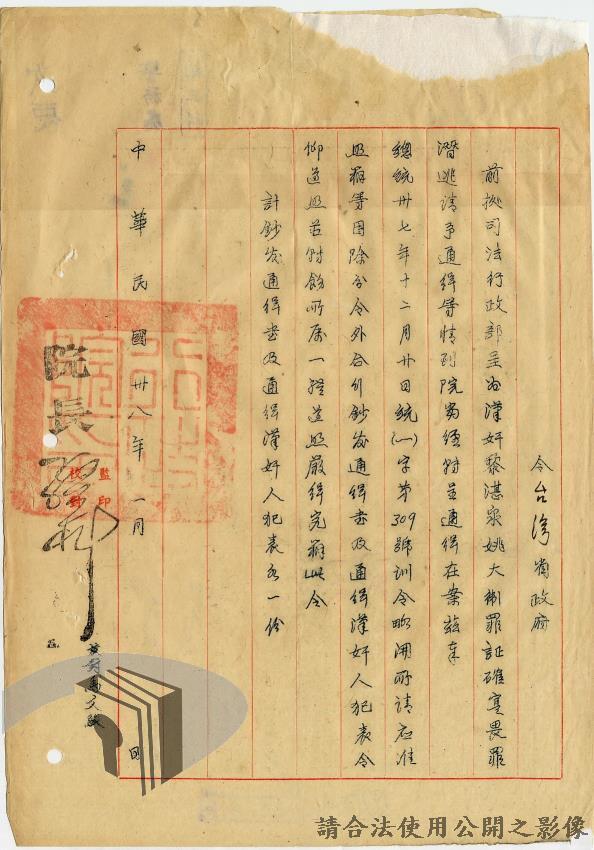 令台灣省政府
前據司法行政部呈為漢奸黎湛泉姚大樹罪証確實畏罪
潛逃請予通緝等情到院當經轉呈通緝在案茲奉
總統卅七年十二月廿日統(一)字第309號訓令略開所請应准
照辦等因除分令外合行鈔发通緝書及通緝漢奸人犯表令
仰遵照並轉飭所屬一體遵照嚴緝究辦此令
計鈔发通緝書及通緝漢奸人犯表各一份
中華民國卅八年一月 日
院長
監印
校對
請合法使用公開之影像